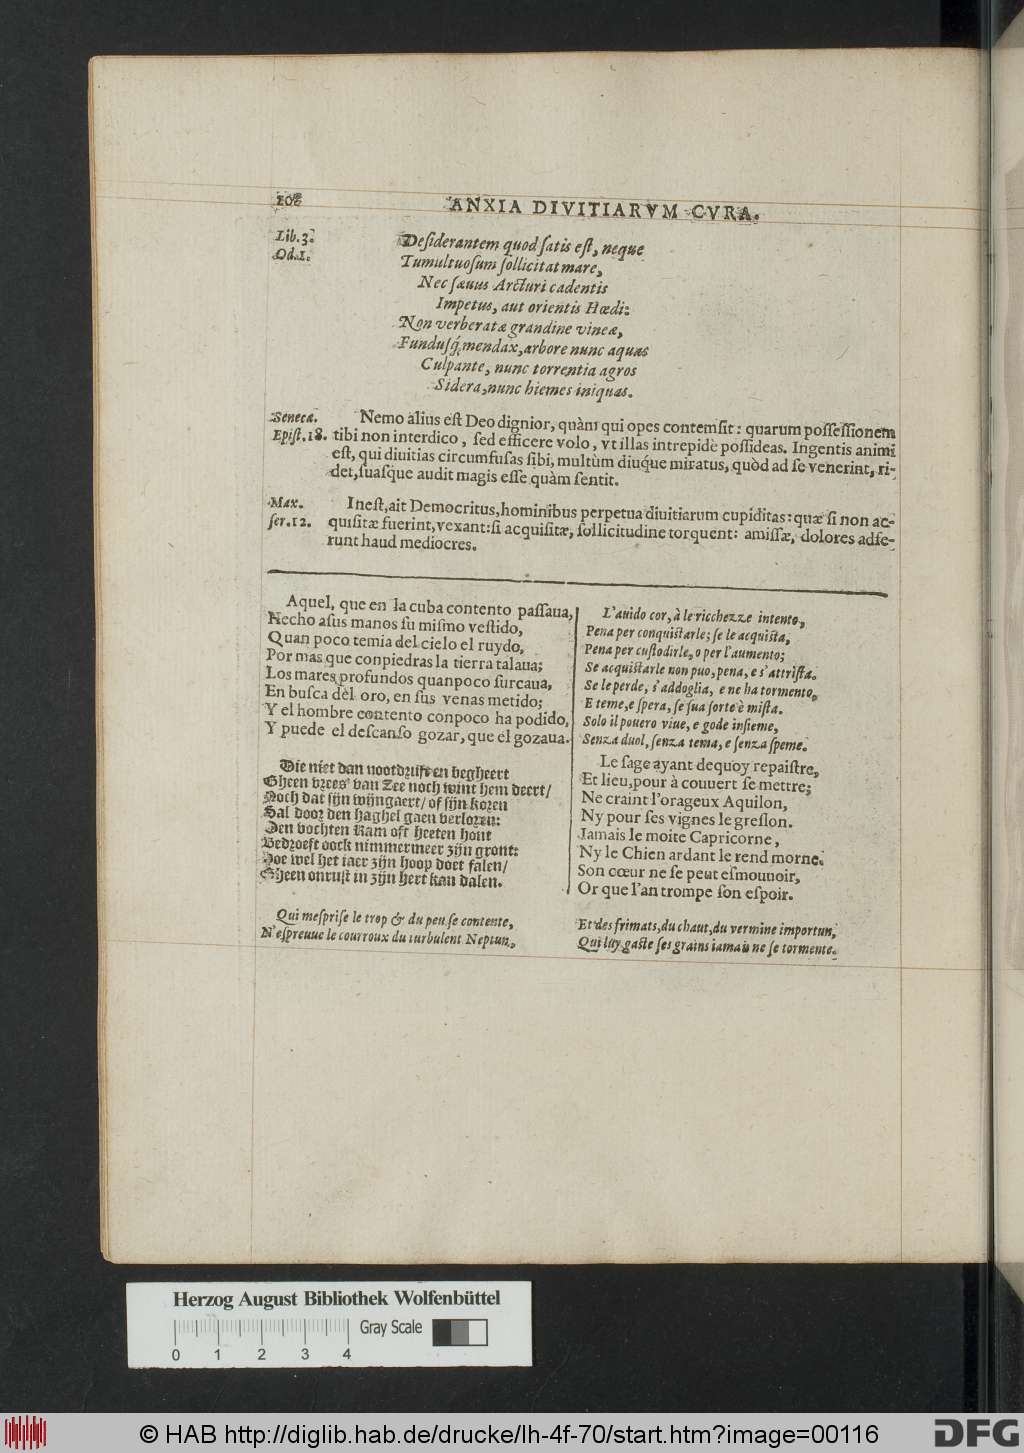 106
ANXIA DIVITIARVM CVRA.
Lib. 3.
Od. 1.
Desiderantem quod satis est, neque
Tumultuosum sollicitat mare,
Nec sæuus Arcturi cadentis
Impetus, aut orientis Hœdi:
Non verberatæ grandine vineæ,
Fundusq́; mendax, arbore nunc aquas
Culpante, nunc torrentia agros
Sidera, nunc hiemes iniquas.
Seneca.
Epist. 18.
Nemo alius est Deo dignior, quàm qui opes contemsit: quarum possessionem
tibi non interdico, sed efficere volo, vt illas intrepidè possideas. Ingentis animi
est, qui diuitias circumfusas sibi, multùm diuq́ue miratus, quòd ad se venerint, ri-
det, suasque audit magis esse quàm sentit.
Max.
ser. 12.
Inest, ait Democritus, hominibus perpetua diuitiarum cupiditas: quæ si non ac-
quisitæ fuerint, vexant: si acquisitæ, sollicitudine torquent: amissæ, dolores adfe-
runt haud mediocres.
Aquel, que en la cuba contento passaua,
Hecho a sus manos su mismo vestido,
Quan poco temia del cielo el ruydo,
Por mas que conpiedras la tierra talaua;
Los mares profundos quanpoco surcaua,
En busca del oro, en sus venas metido;
Y el hombre contento conpoco ha podido,
Y puede el descanso gozar, que el gozaua.
Die niet dan nootdruft en begheert
Gheen vrees' van Zee noch wint hem deert/
Noch dat sijn wijngaert/ of sijn koren
Sal door den haghel gaen verloren:
Den vochten Ram oft heeten hont
Bedroeft oock nimmermeer zijn gront:
Hoe wel het iaer zijn hoop doet falen/
Gheen onrust in zijn hert kan dalen.
Qui mesprise le trop & du peu se contente,
N'espreuue le courroux du turbulent Neptun,
L'auido cor, à le ricchezze intento,
Pena per conquistarle; se le acquista,
Pena per custodirle, o per l'aumento;
Se acquistarle non puo, pena, e s'attrista.
Se le perde, s'addoglia, e ne ha tormento,
E teme, e spera, se sua sorte è mista.
Solo il pouero viue, e gode insieme,
Senza duol, senza tema, e senza speme.
Le sage ayant dequoy repaistre,
Et lieu, pour à couuert se mettre;
Ne craint l'orageux Aquilon,
Ny pour ses vignes le greslon.
Iamais le moite Capricorne,
Ny le Chien ardant le rend morne.
Son cœur ne se peut esmouuoir,
Or que l'an trompe son espoir.
Et des frimats, du chaut, du vermine importun,
Qui luy gaste ses grains iamais ne se tormente.
Herzog August Bibliothek Wolfenbüttel
Gray Scale
0 1 2 3 4
© HAB http://diglib.hab.de/drucke/lh-4f-70/start.htm?image=00116
DFG